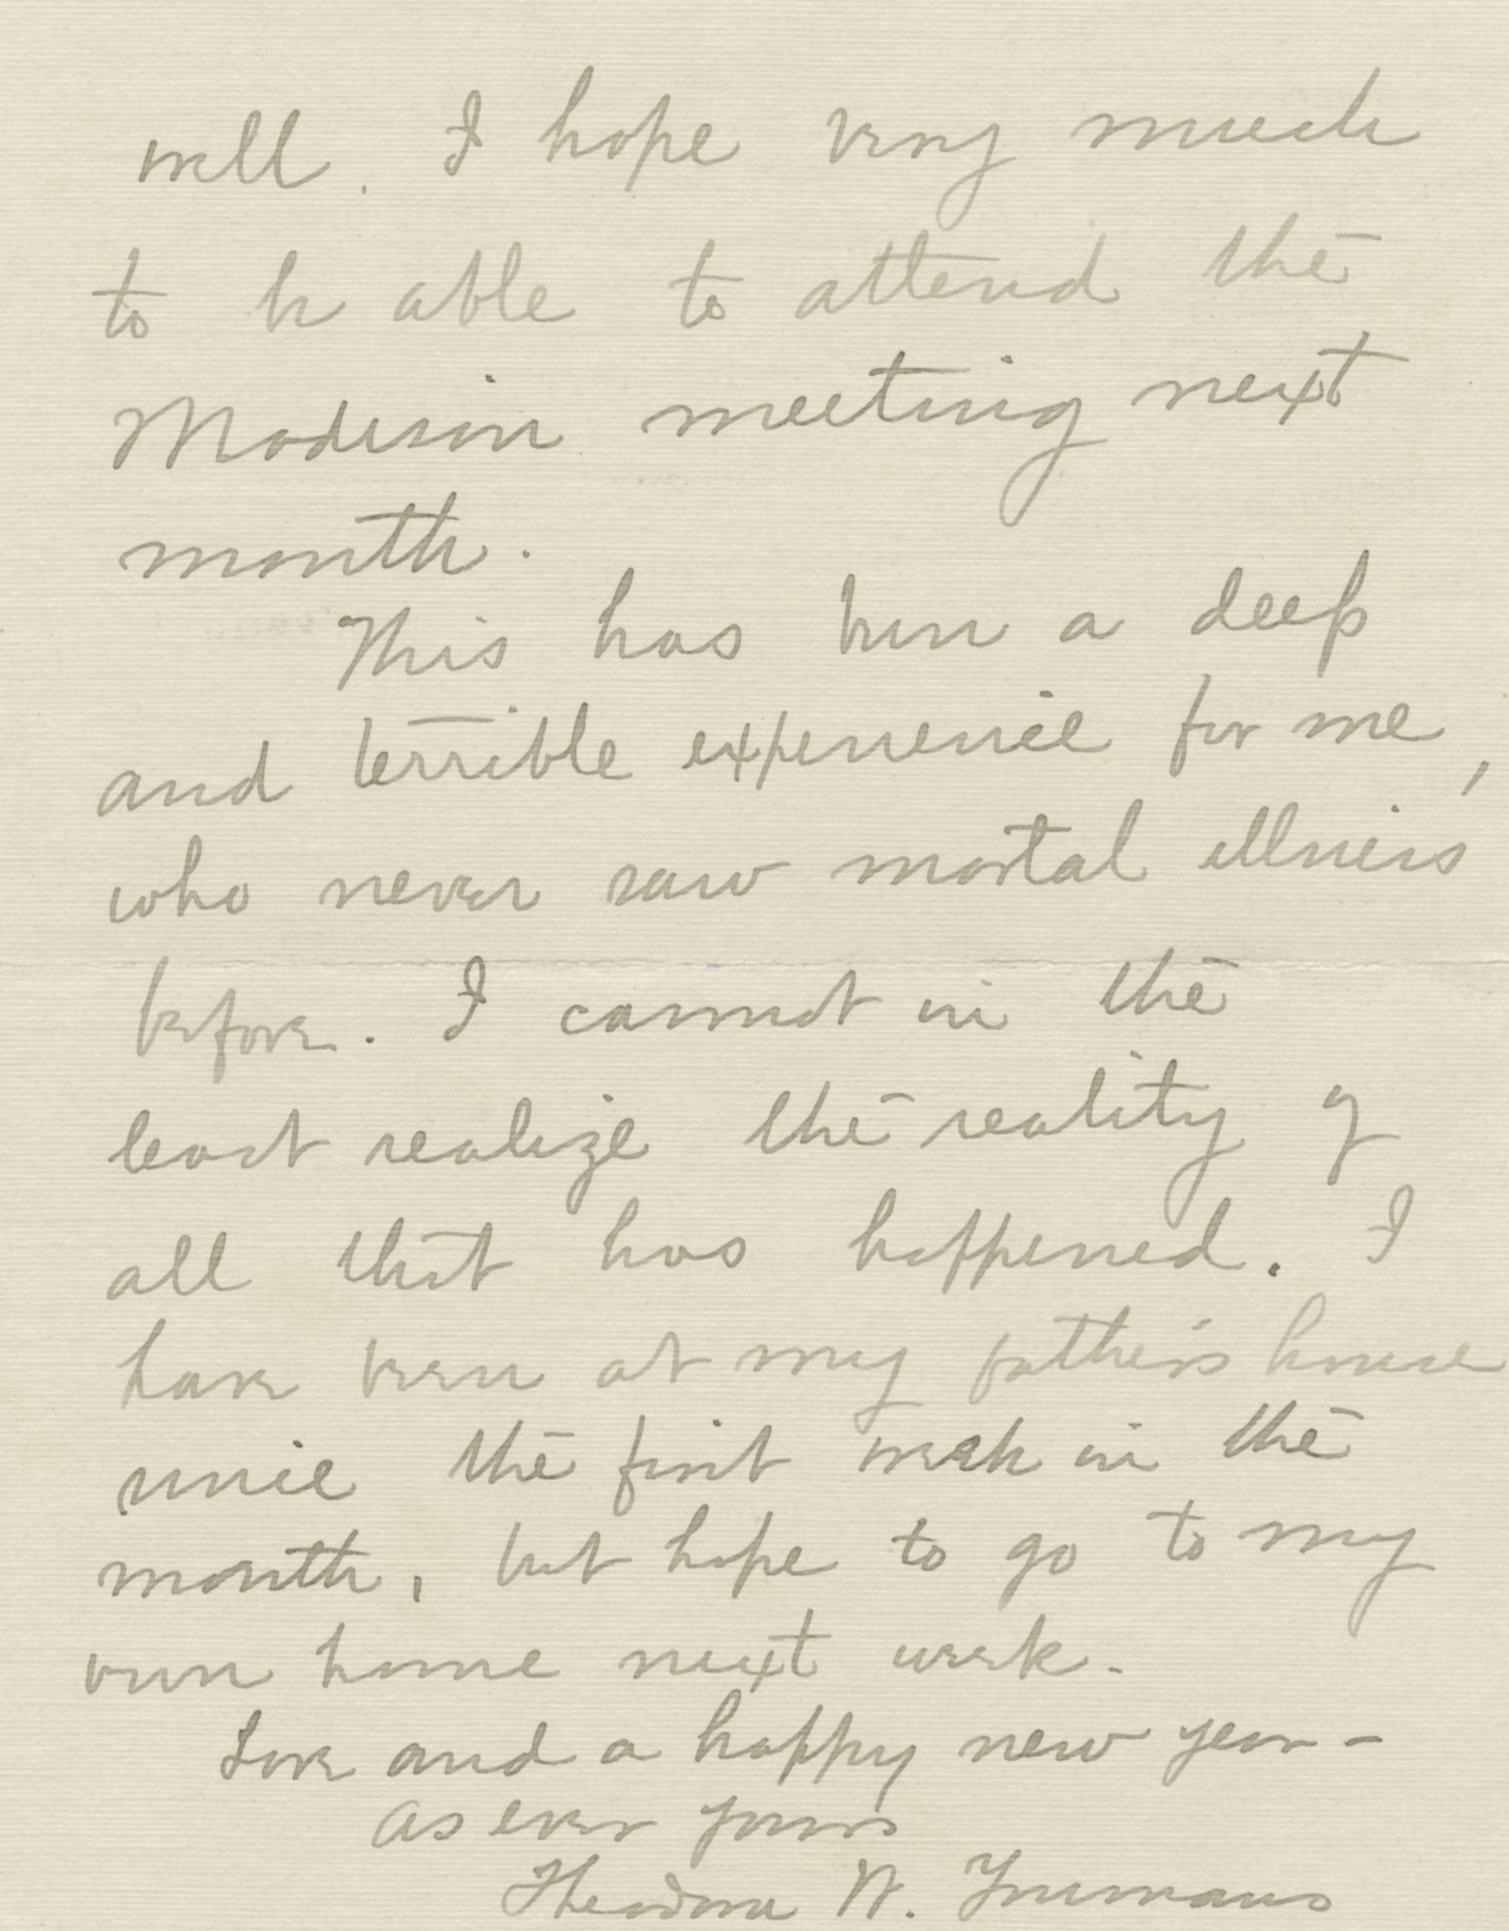 well. I hope very much
to be able to attend the
Madison meeting next
month.
This has been a deep
and terrible experience for me,
who never saw mortal illness
before. I cannot in the
least realize the reality of
all that has happened. I
have been at my father's house
since the first week in the
month, but hope to go to my
own home next week.
Love and a happy new year -
As ever yours
Theodora W. Youmans